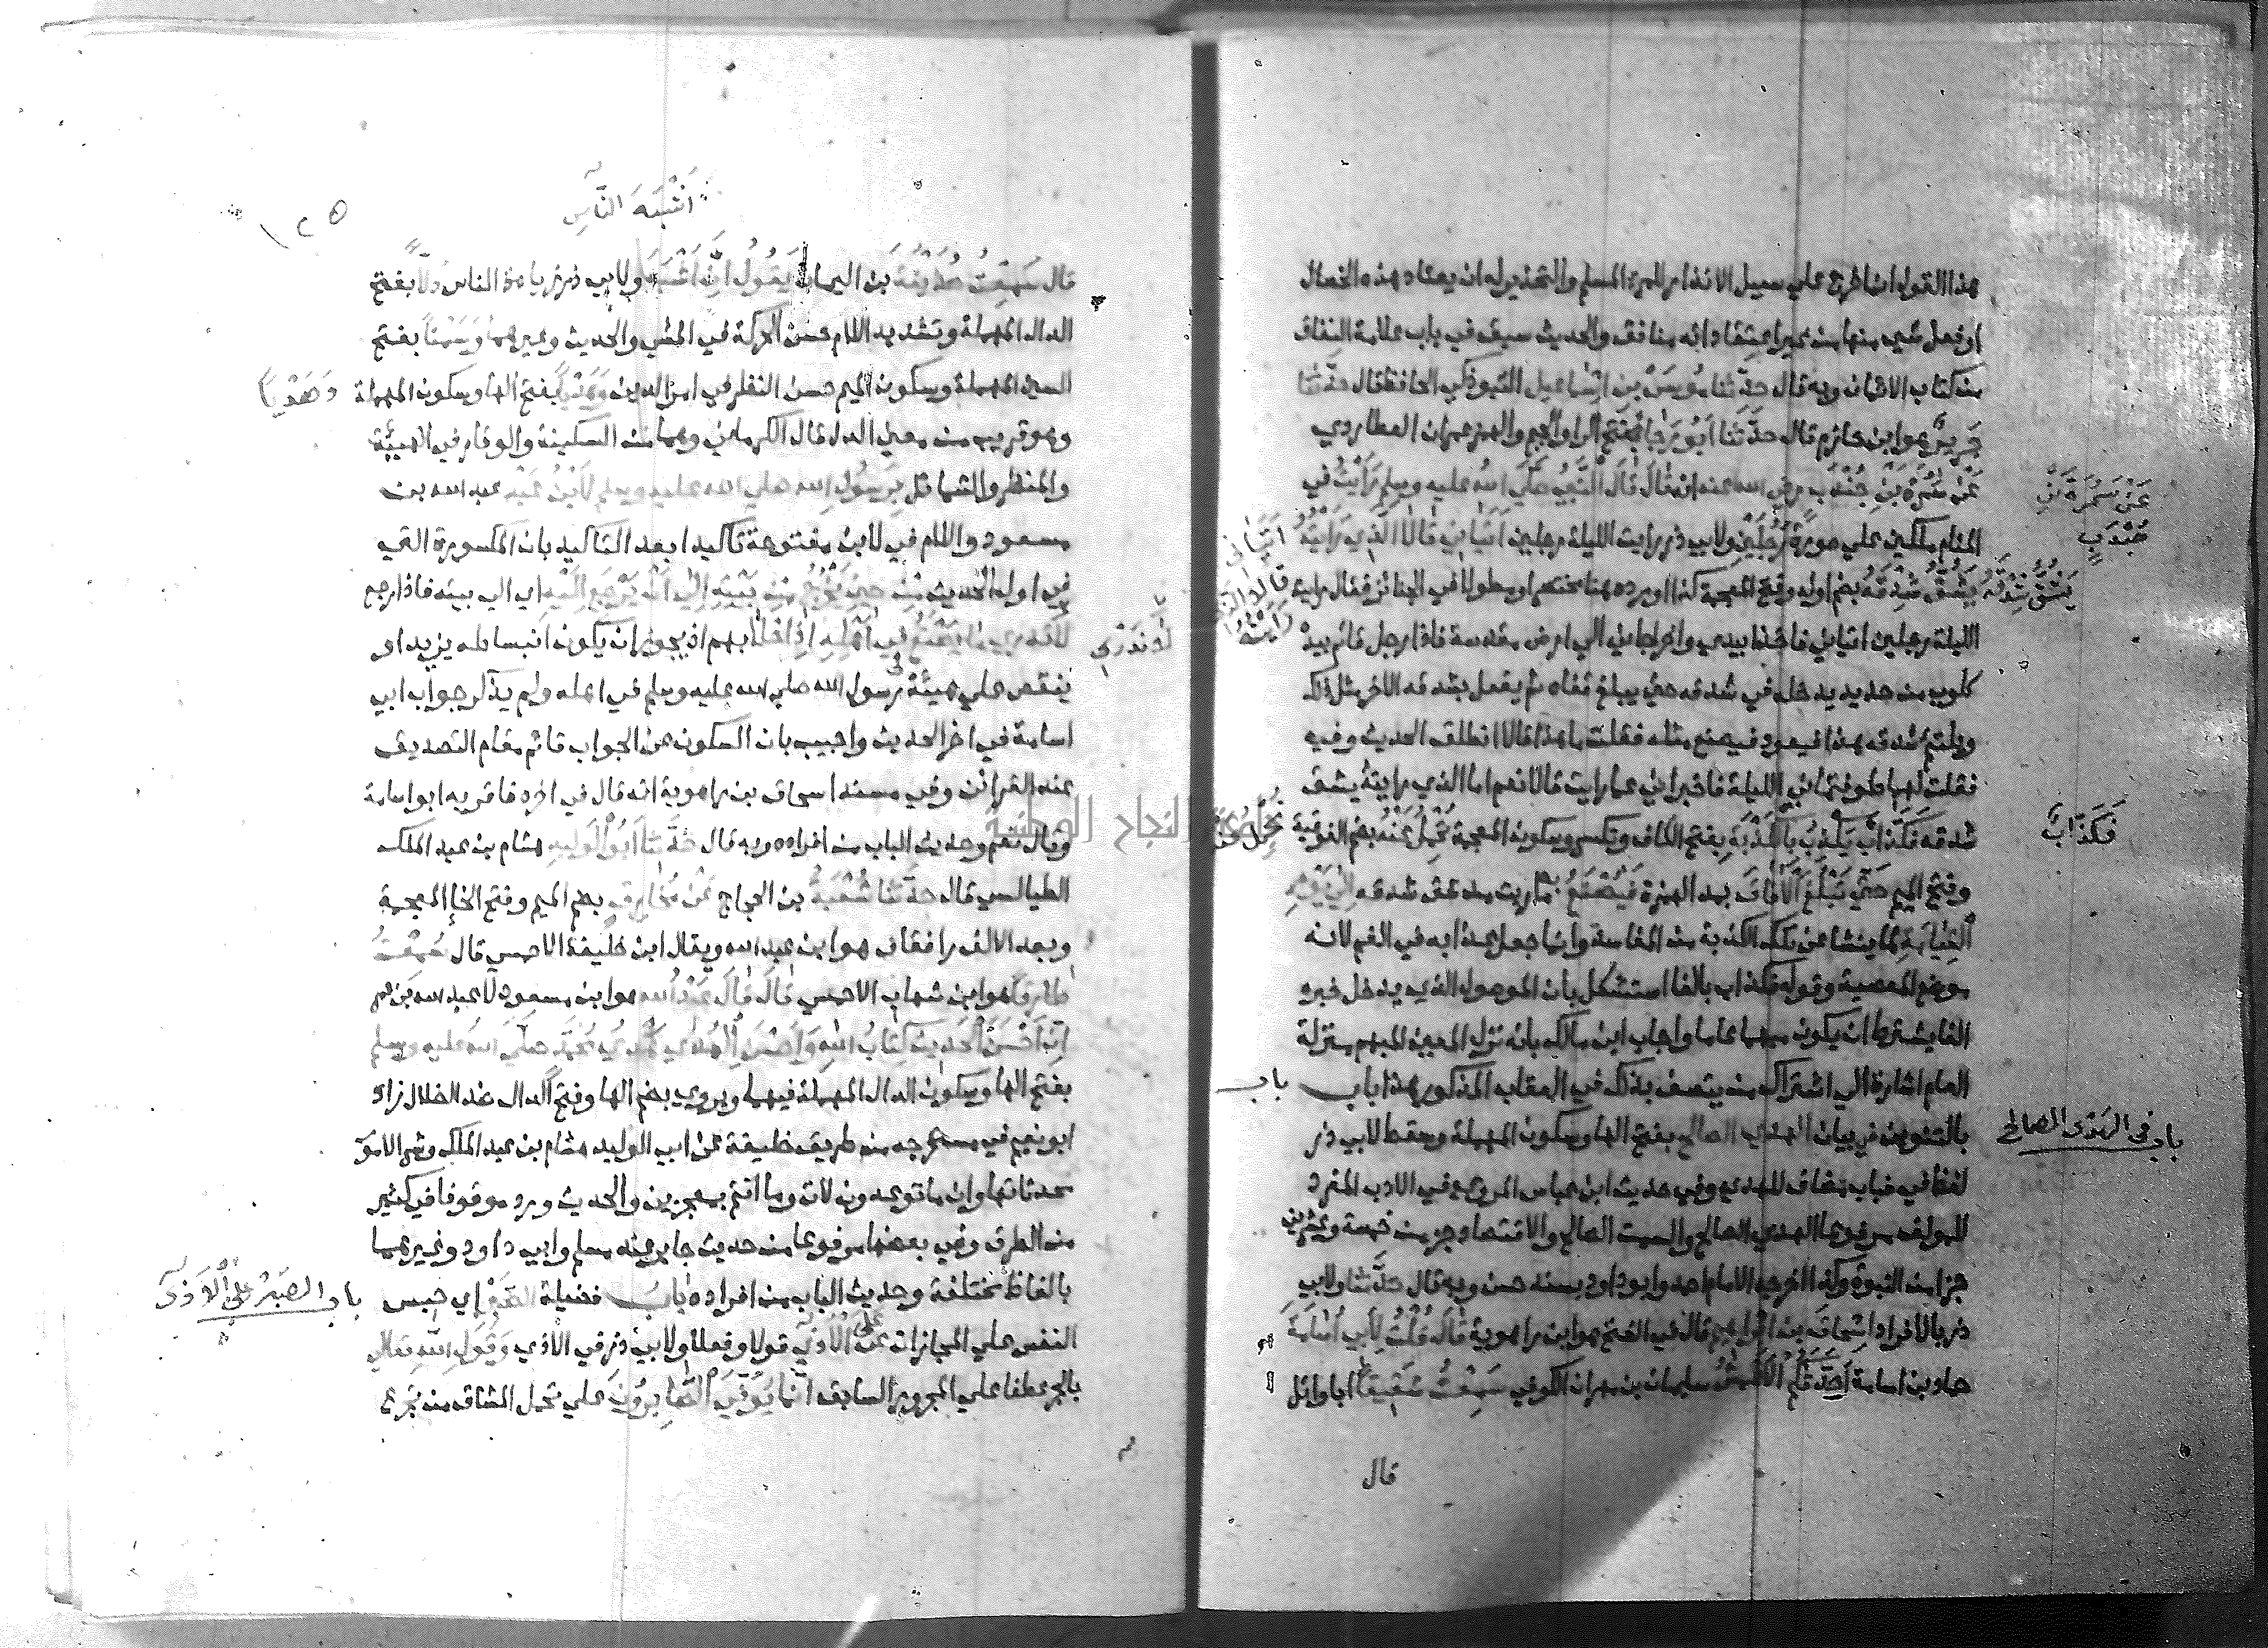 هذا القول انما خرج علي سبيل الانذار للمرء المسلم والتحذير له ان يعتاد هذه الخصال
او فعل شيء منها من غير اعتقاد انه منافق والحديث سبق في باب علامة النفاق
من كتاب الايمان وبه قال حدّثنا موسَىٰ بن اسماعيل التبوذكي الحافظ قال حدّثنا
جَرِيرٌ هوابن حازم قال حدّثنا اَبُو رَجا بفتح الرا والجيم والهمز عمران العطاردي
عَنْ سَمُرَةَ بْنِ جُنْدَبٍ رضي الله عنه انه قالَ قَالَ النَّبِيُّ صَلَّي الله عليه وسلم رَاَيْتُ في
عَنْ سَمُرَةَ بْنِ
جُنْدَبٍ
المنام ملكين علي صورة رَجُلَيْنِ ولابي ذر رايت الليلة رجلين اَتَيَانِي قَالَا الَّذِي رَاَيْتَهُ
اَتَيَانِي
قالا الذي
رَاَيْتَهُ
يَشُقُّ شِدْقَهُ
يُشَقُّ شِدْقُهُ بضم اوله وفتح المعجمة كذا اورده هنا مختصرا ومطولا في الجنائز فقال رايت
الليلة رجلين اتياني فاخذا بيدي واخرجاني الي ارض مقدسة فاذا رجل قائم بيده
كلوب من حديد يدخله في شدقه حتي يبلغ قفاه ثم يفعل بشدقه الاخر مثل ذلك
ويلتئم شدقه هذا فيعود فيصنع مثله فقلت ما هذا قالا انطلق الحديث وفيه
فقلت لهما طوفتماني الليلة فاخبراني عما رايت قالا نعم اما الذي رايته يشق
شدقه فَكَذَّابٌ يَكْذِبُ بِالْكَذْبَةِ بفتح الكاف وتكسر وسكون المعجمة تُحْمَلُ عَنْهُ بضم الفوقية
فَكَذَّابٌ
وفتح الميم حَتَّي تَبْلُغَ الْاٰفَاقَ بمد الهمزة فَيُصْنَعُ بِهِ ما رايت من شق شدقه اِلَي يَوْمِ
الْقِيَامَةِ لما ينشا عن تلك الكذبة من المفاسد وانما جعل عذابه في الفم لانه
موضع المعصية وقوله فكذاب بالفا استشكل بان الموصول الذي يدخل خبره
الفا يشترط ان يكون مبهما عاما واجاب ابن مالك بانه نزل المعين المبهم منزلة
العام اشارة الي اشتراك من يتصف بذلك في العقاب المذكور هذا باب
باب
بالتنوين في بيان الهدي الصالح بفتح الها وسكون المهملة وسقط لابي ذر
باب في الهدي الصالح
لفظ في فباب مضاف للهدي وفي حديث ابن عباس المروي في الادب المفرد
للمولف مرفوعا الهدي الصالح والسمت الصالح والاقتصاد جزء من خمسة وعشرين
جزا من النبوة وكذا اخرجه الامام احمد وابو داود بسند حسن وبه قال حدّثنا ولابي
ذر بالافراد اِسْحَاقُ بن ابراهيم قال في الفتح هو ابن راهوية قَالَ قُلْتُ لِاَبِي اُسَامَةَ
حماد بن اسامة اَحَدَّثَكُمْ الْاَعْمَشُ سليمان بن مهران الكوفي سَمِعْتُ شَقِيقًا ابا وائل
قال
١٢٥
اَشْبَهَ النَّاسِ
قال سَمِعْتُ حُذَيْفَةَ بن اليمان يَقُولُ اِنَّ اَشْبَهَ ولابي ذر زيادة الناس دَلًّا بفتح
الدال المهملة وتشديد اللام حسن الحركة في المشي والحديث وغيرهما وَسَمْتًا بفتح
السين المهملة وسكون الميم حسن النظر في امر الدين وَهَدْيًا بفتح الها وسكون المهملة
وَهَدْيًا
وهو قريب من معني الدل قال الكرماني وهما من السكينة والوقار في الهيئة
والمنظر والشمائل بِرَسُولِ الله صلي الله عليه وسلم لَابْنُ عَبْدِ عبد الله بن
مسعود واللام في لابن مفتوحة تاكيدا بعد التاكيد بان المكسورة التي
في اول الحديث مِنْ حِينَ يَخْرُجُ مِنْ بَيْتِهِ اِلَي اَنْ يَرْجِعَ اِلَيْهِ اي الي بيته فاذا رجع
لَا نَدْرِي مَا يَصْنَعُ فِي اَهْلِهِ اِذَا خَلَا بهم اذ يجوز ان يكون انبساطه يزيد او
لَا نَدْرِي
ينقص علي هيئة رسول الله صلي الله عليه وسلم في اهله ولم يذكر جواب ابي
اسامة في اخر الحديث واجيب بان السكون عن الجواب قائم مقام التصديق
عند القرائن وفي مسند اسحاق بن راهوية انه قال في اخره فاقر به ابو اسامة
وقال نعم وحديث الباب من افراده وبه قال حَدَّثَنَا اَبُو الْوَلِيدِ هشام بن عبد الملك
الطيالسي قال حَدَّثَنَا شُعْبَةُ بن الحجاج عَنْ مُخَارِقٍ بضم الميم وفتح الخا المعجمة
وبعد الالف را فقاف هو ابن عبد الله ويقال ابن خليفة الاحمسي قال سَمِعْتُ
طَارِقًا هو ابن شهاب الاحمسي قَالَ قَالَ عَبْدُ اللهِ هو ابن مسعود لا عبد الله بن عمر
اِنَّ اَحْسَنَ الْحَدِيثِ كِتَابُ اللهِ وَاَحْسَنَ الْهَدْيِ هَدْيُ مُحَمَّدٍ صَلَّي الله عليه وسلم
بفتح الها وسكون الدال المهملة فيهما ويروي بضم الها وفتح الدال ضد الضلال زاد
ابو نعيم في مستخرجه من طريق خليفة عن ابي الوليد هشام بن عبد الملك وشر الامور
محدثاتها وان ما توعدون لات وما انتم بمعجزين والحديث ورد موقوفا في كثير
من الطرق وفي بعضها مرفوعا من حديث جابر عند مسلم وابي داود وغيرهما
بالفاظ مختلفة وحديث الباب من افراده بَابُ فضيلة الصَّبْرِ اي حبس
باب الصَبْر عَلَي الْاَذَي
النفس علي المجازات عَلَي الْاَذَي قولا وفعلا ولابي ذر في الاذي وَقَوْلِ اللهِ تعالي
بالجر عطفا علي المجرور السابق اِنَّمَا يُوَفَّي الصَّابِرُونَ علي تحمل المشاق من تجرع
جامعة النجاح الوطنية